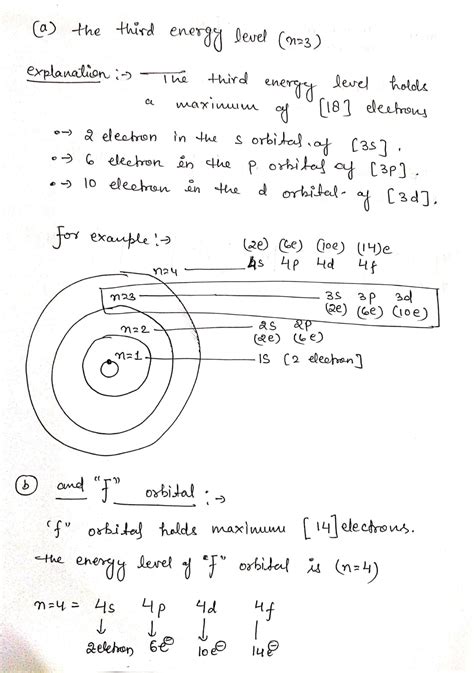 (a) the third energy level (n=3)
explanation :→ The third energy level holds
a maximum of [18] electrons
•→ 2 electron in the s orbital of [3s].
•→ 6 electron in the p orbital of [3p].
•→ 10 electron in the d orbital of [3d].
for example :→
(2e) (6e) (10e) (14)e
n=4 4s 4p 4d 4f
n=3 3s 3p 3d
(2e) (6e) (10e)
n=2 2s 2p
(2e) (6e)
n=1 1S [2 electron]
(b) and "f" orbital :→
"f" orbital holds maximum [14] electrons.
the energy level of "f" orbital is (n=4)
n=4 = 4s 4p 4d 4f
↓ ↓ ↓ |
2electron 6e⊖ 10e⊖ 14e⊖